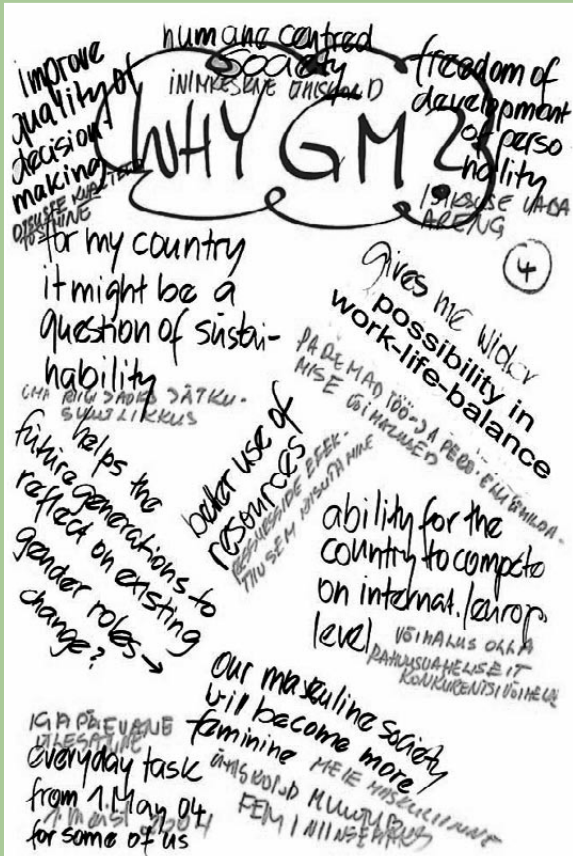 humane centred
society
INIMKESKNE ÜHISKOND
improve
quality of
decision
making
freedom of
development
of perso
nality
ISIKSUSE VABA
ARENG
WHY GM?
for my country
it might be a
question of sustai-
nability
JÄTKU-
SUUTLIKKUS
4
gives me wider
possibility in
work-life-balance
PAREMAD TÖÖ- JA
MISE VÕIMALUSED
better use of
resources
RESSURSSIDE EFEK-
TIIVSEM KASUTAMINE
helps the
future generations to
reflect on existing
gender roles →
change?
ability for the
country to compete
on internat./europ.
level
VÕIMALUS OLLA
RAHVUSVAHELISELT
our masculine society
will become more
feminine
MEIE MASKULIINNE
ÜHISKOND MUUTUB
IGAPÄEVANE
ÜLESANNE
everyday task
from 1. May 04
for some of us